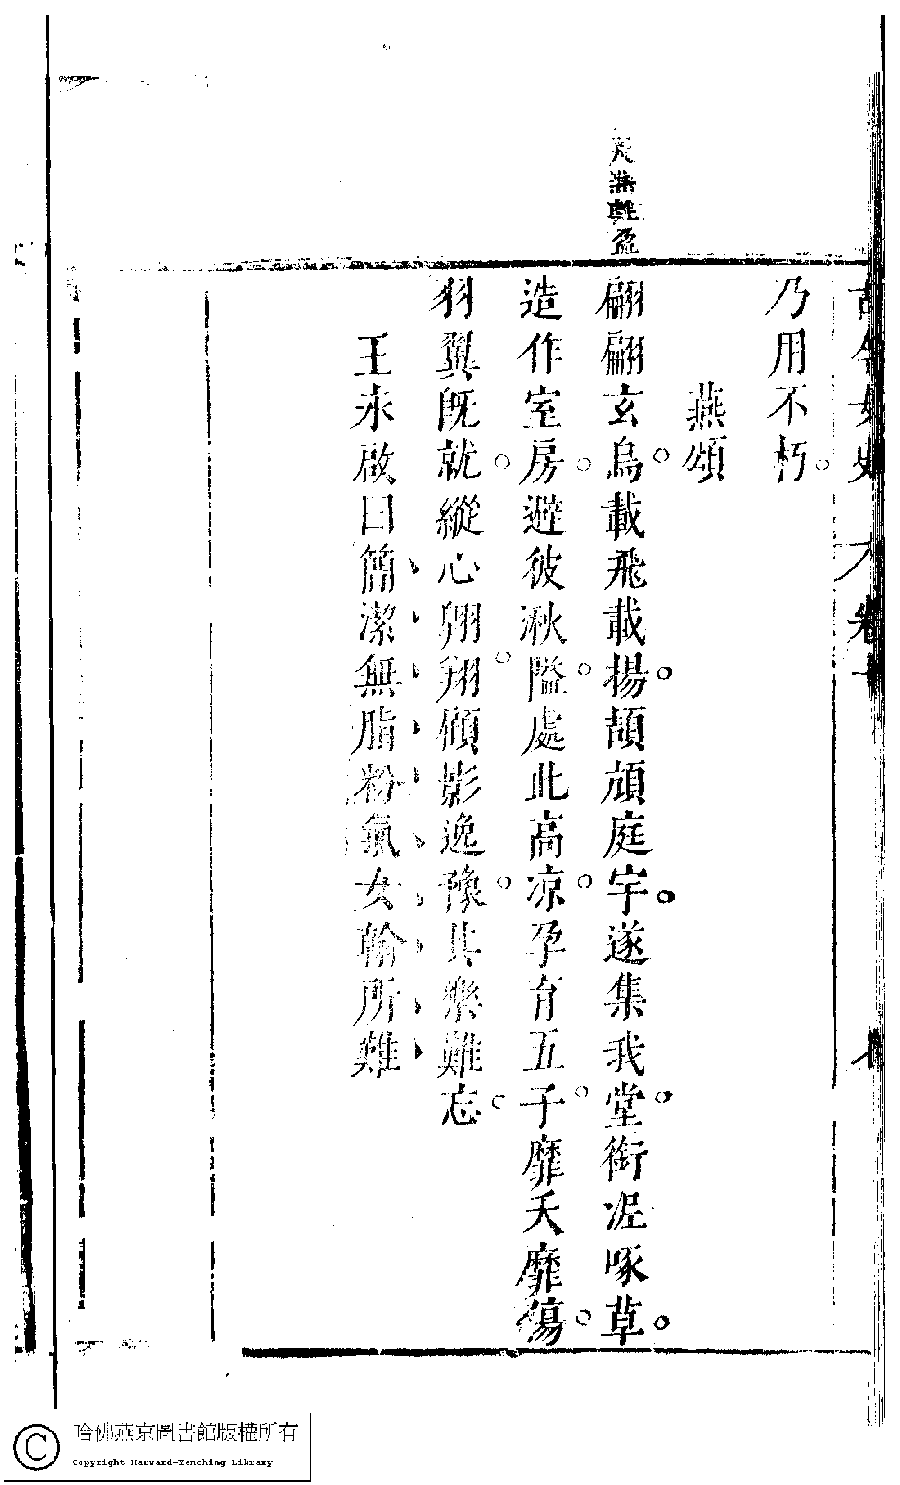 古今女史 卷
乃用不朽
燕頌
翩翩玄鳥載飛載揚頡頏庭宇遂集我堂銜泥啄草
造作室房避彼湫隘處此高凉孕育五子靡夭靡傷
羽翼旣就縱心翱翔顧影逸豫其樂難忘
王永啟曰簡潔無脂粉氣女翰所難
哈佛燕京圖書館版權所有
Copyright Harvard-Yenching Library